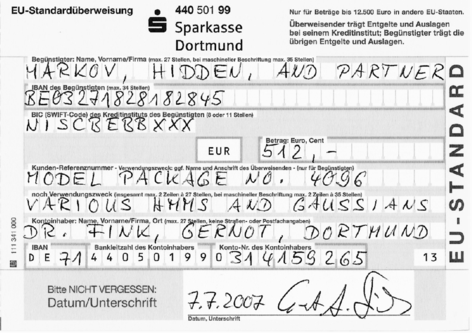 EU-Standardüberweisung
440 501 99
Sparkasse
Dortmund
Nur für Beträge bis 12.500 Euro in andere EU-Staaten.
Überweisender trägt Entgelte und Auslagen
bei seinem Kreditinstitut; Begünstigter trägt die
übrigen Entgelte und Auslagen.
Begünstigter: Name, Vorname/Firma (max. 27 Stellen, bei maschineller Beschriftung max. 35 Stellen)
MARKOV, HIDDEN, AND PARTNER
IBAN des Begünstigten (max. 34 Stellen)
BE03271828182845
BIC (SWIFT-Code) des Kreditinstituts des Begünstigten (8 oder 11 Stellen)
NISCBEBBXXX
EUR
Betrag: Euro, Cent
512,-
Kunden-Referenznummer - Verwendungszweck, ggf. Name und Anschrift des Überweisenden - (nur für Begünstigten)
MODEL PACKAGE NO. 4096
noch Verwendungszweck (insgesamt max. 2 Zeilen à 27 Stellen, bei maschineller Beschriftung max. 2 Zeilen à 35 Stellen)
VARIOUS HMMS AND GAUSSIANS
Kontoinhaber: Name, Vorname/Firma, Ort (max. 27 Stellen, keine Straßen- oder Postfachangaben)
DR. FINK, GERNOT, DORTMUND
IBAN Bankleitzahl des Kontoinhabers Konto-Nr. des Kontoinhabers
DE 71 44050199 0314159265 13
EU-STANDARD
Bitte NICHT VERGESSEN:
Datum/Unterschrift
7.7.2007
Datum, Unterschrift